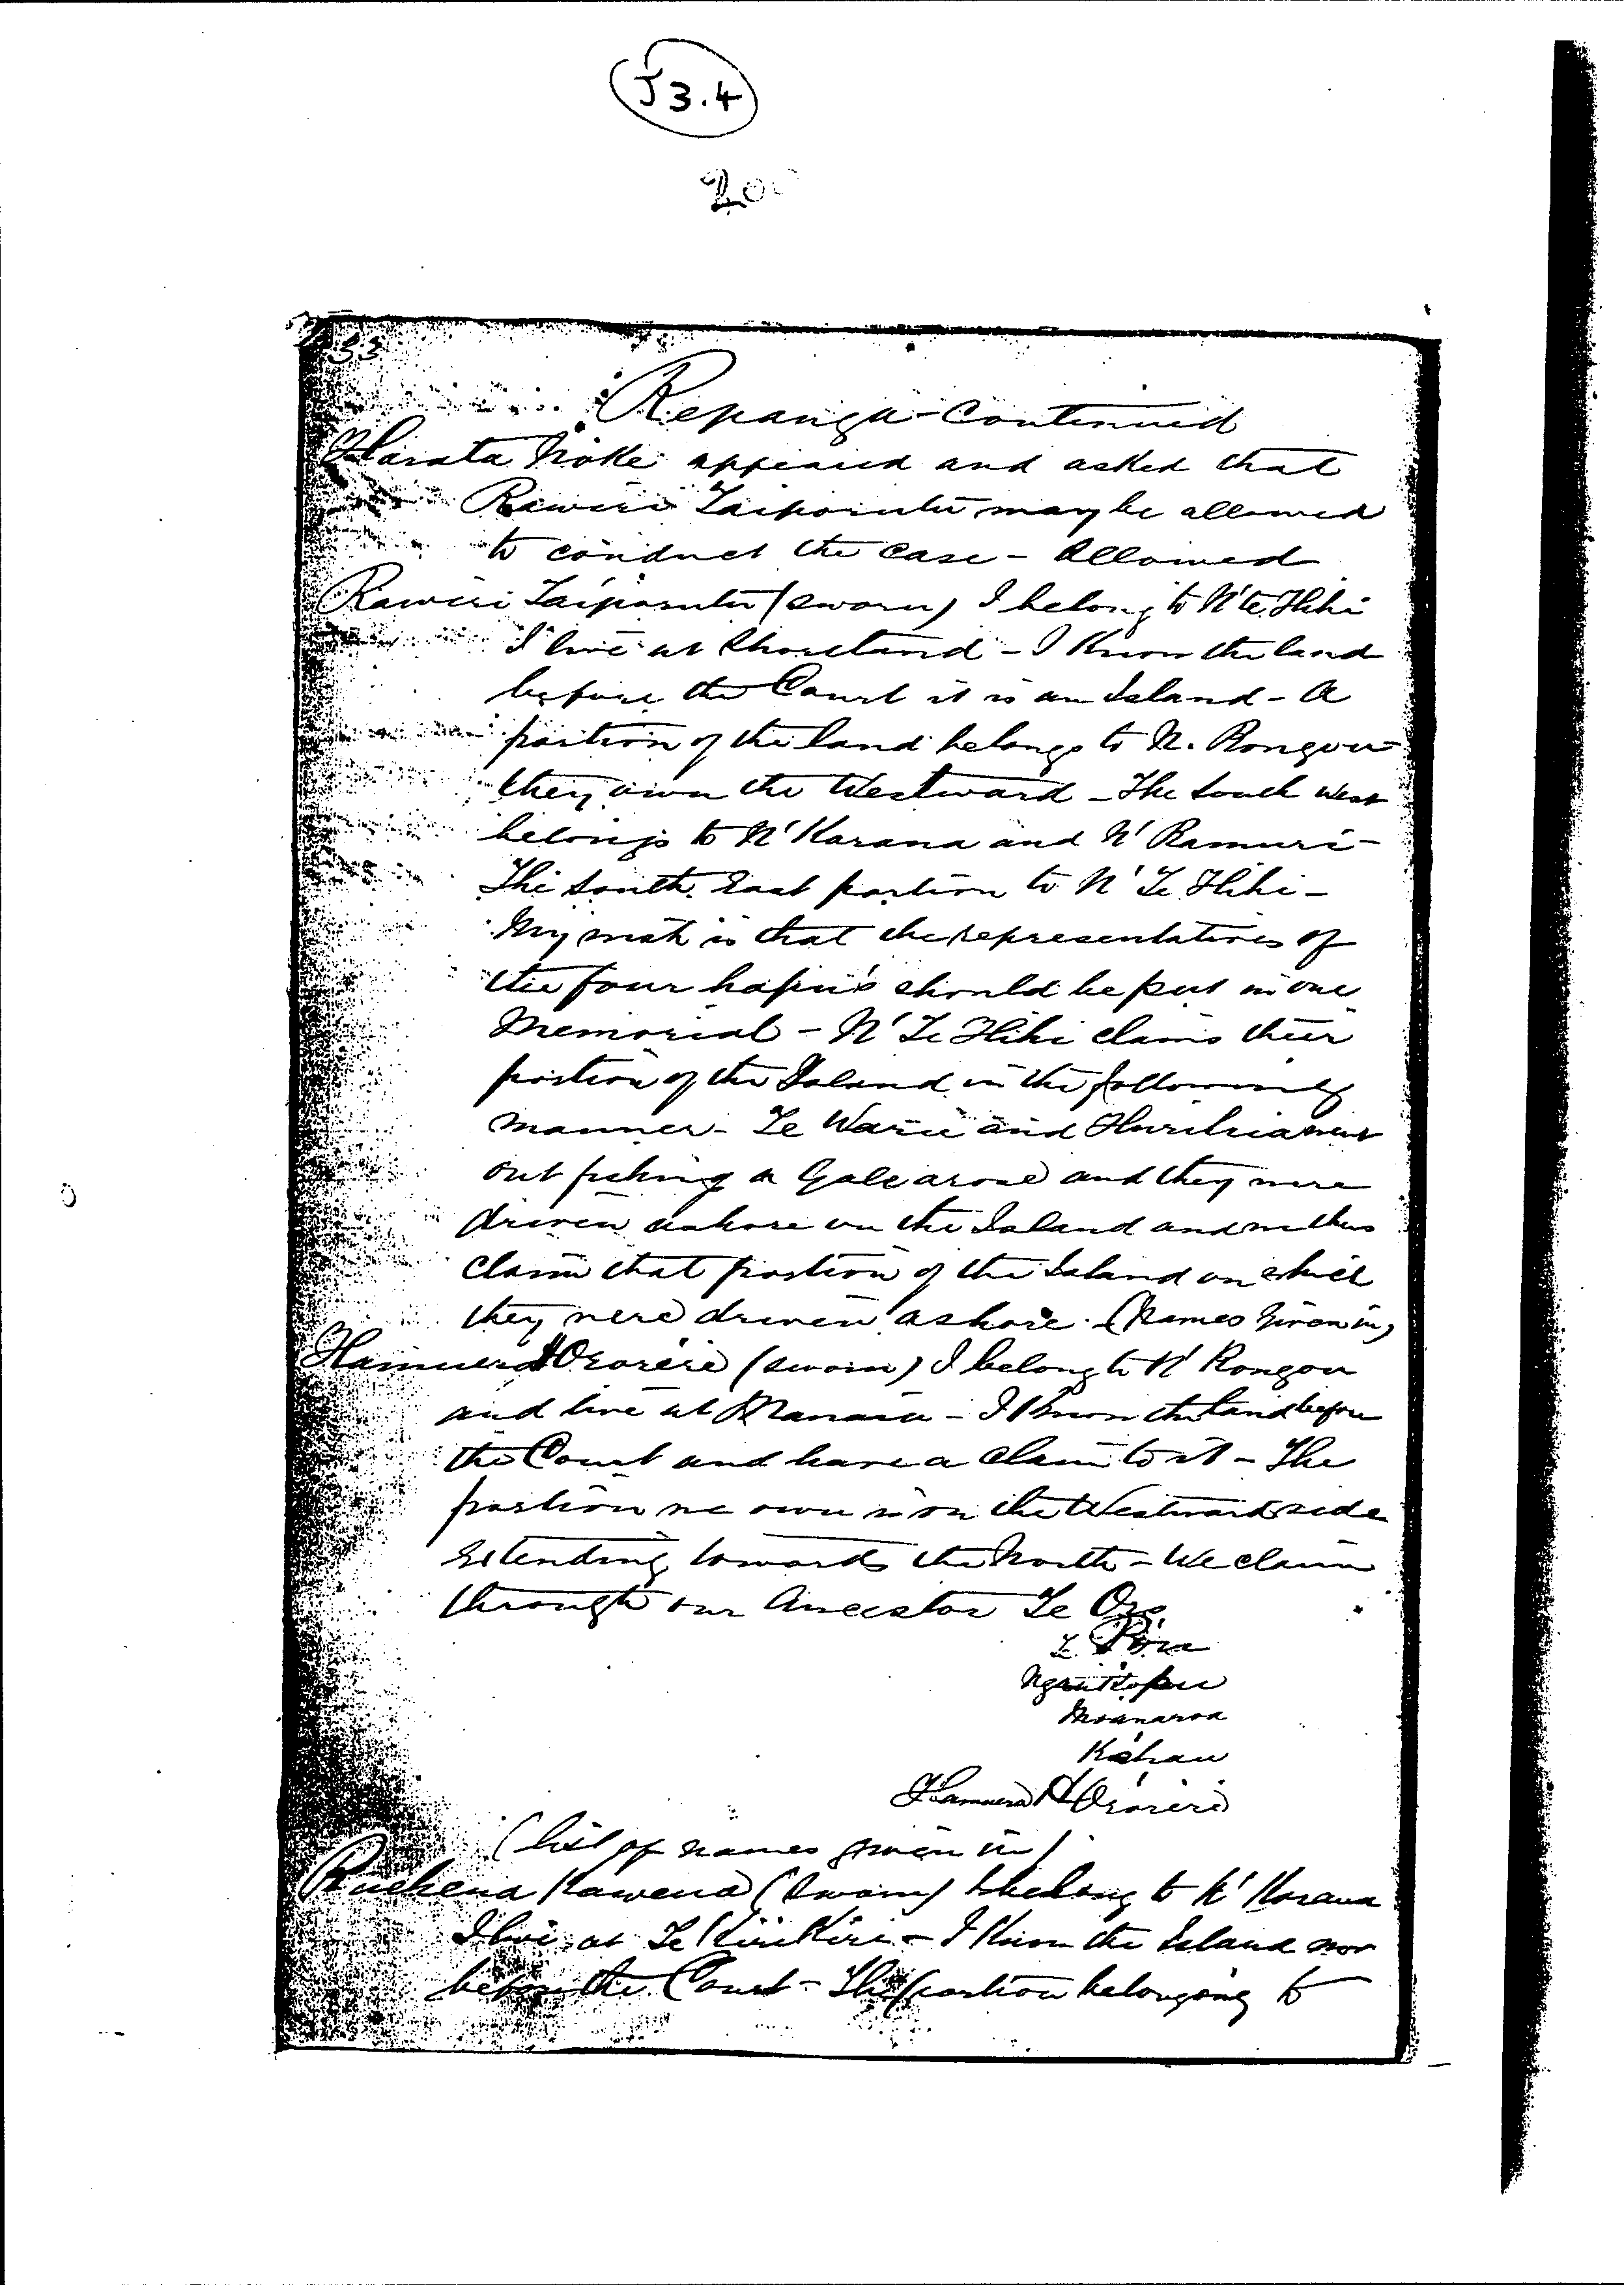 J 3.4
20
33
Repanga - Continued
Harata Noke appeared and asked that
Rawiri Taiporutu may be allowed
to conduct the case - Allowed
Rawiri Taiporutu (sworn) I belong to N' te Hihi
I live at Shortland - I Know the land
before the Court it is an Island - A
portion of the land belongs to N. Rongou
they own the Westward - The South West
belongs to N' Karana and N' Ramuri -
The South East portion to N' Te Hihi -
My wish is that the representatives of
the four hapu's should be put in one
Memorial - N' Te Hihi claims their
portion of the Island in the following
manner - Te Warii and Huruhia went
out fishing a Gale arose and they were
driven ashore on the Island and we thus
Claim that portion of the Island on which
they were driven ashore. (Names given in)
Hamuera H Ororere (sworn) I belong to N' Rongou
and live at Manaia - I Know the land before
the Court and have a Claim to it - The
portion we own is on the Westward side
Extending towards the North - We claim
through our Ancestor Te Ore
Moanaroa
Kahau
Hamuera H Ororere
(list of names given in)
Kawena (Sworn) I belong to N' Karana
I live at Te Kirikiri - I Know the Island now
before the Court - The portion belonging to